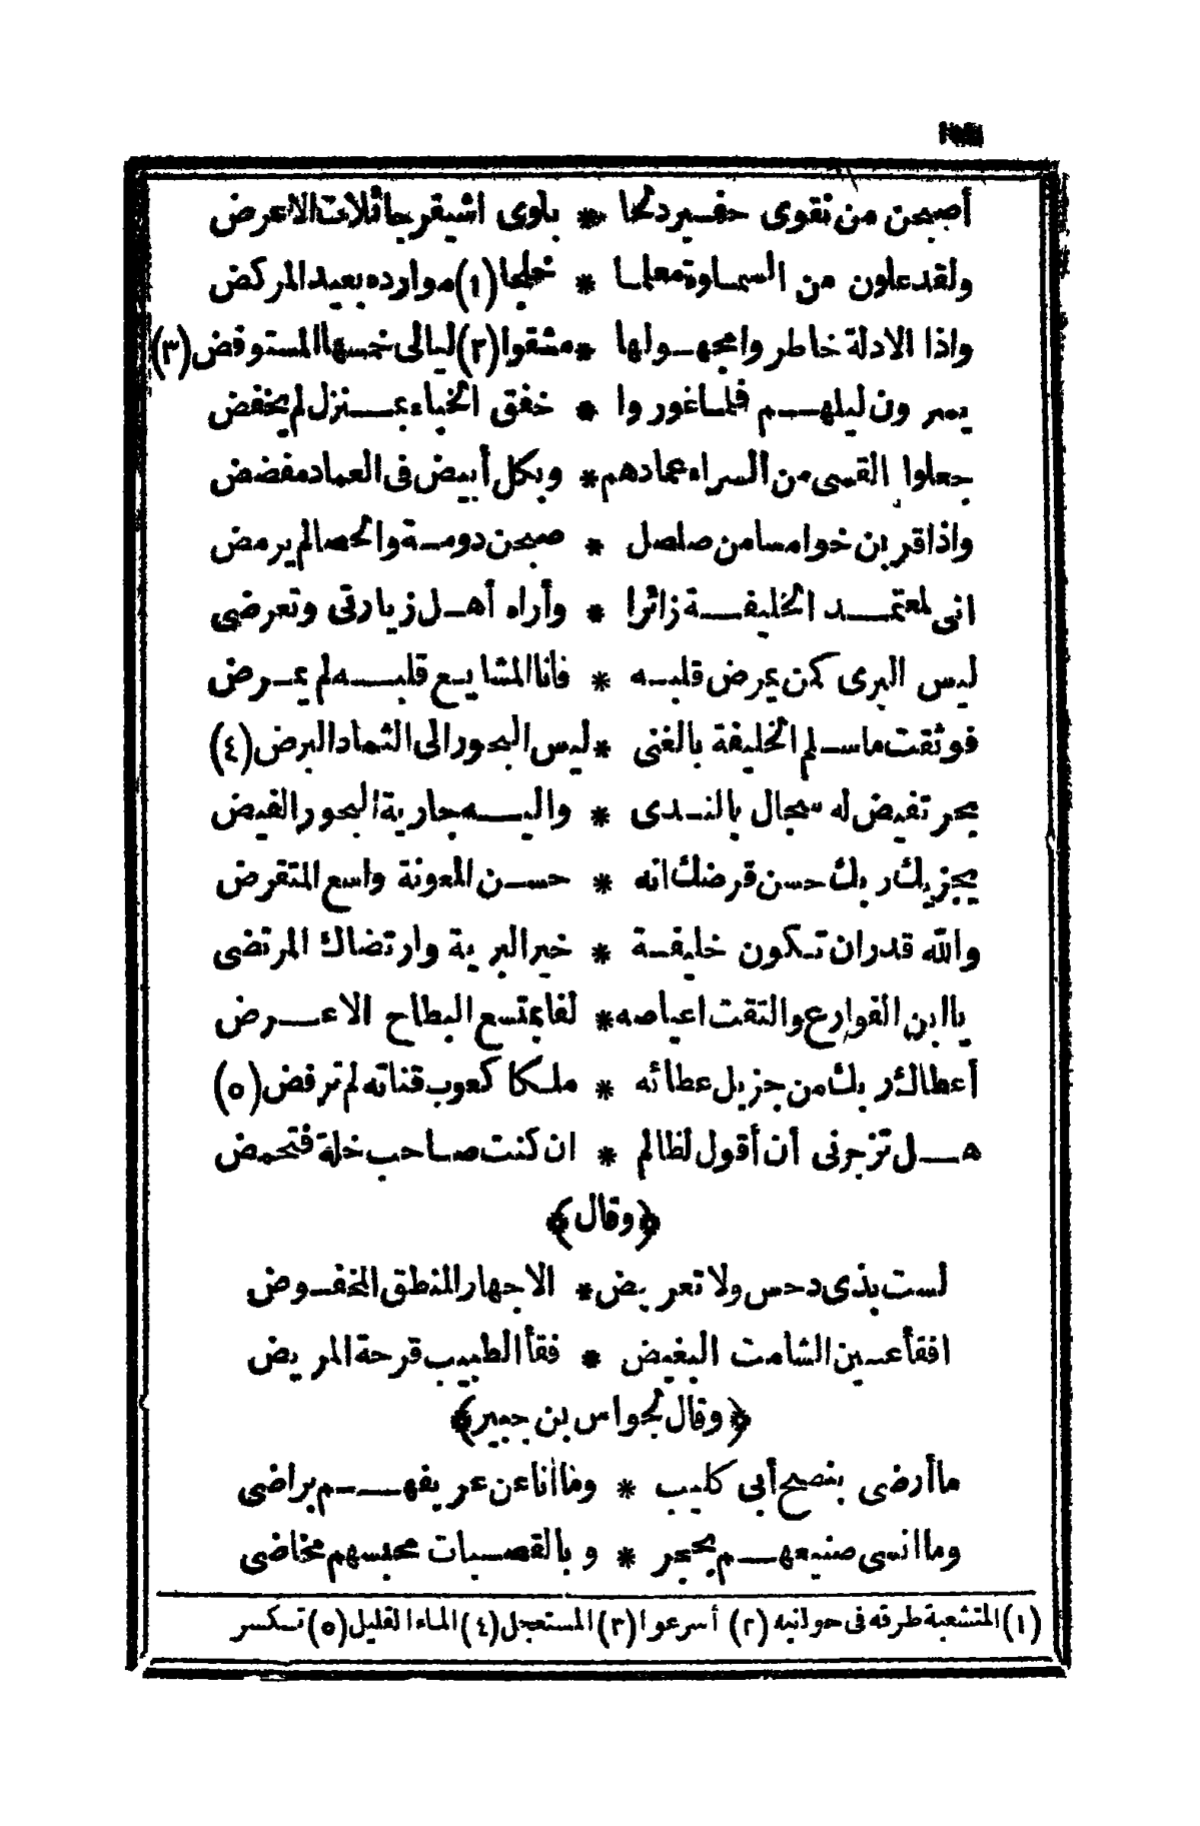 أصبحن من نقوى حفير دلحا * بلوى اشيقر جائلات الاعرض
ولقد علون من السماوة معلما * خلجا (١) موارده بعيد المركض
واذا الادلة خاطروا مجهولها * مشقوا (٢) ليالى خمسها المستوفض (٣)
يسرون ليلهم فلما غوروا * خفق الخباء بمنزل لم يخفض
جعلوا القسى من السراء عمادهم * وبكل أبيض فى العماد مفضض
واذا قربن خوامسا من صلصل * صبحن دومة والحصا لم يرمض
انى لمعتمد الخليفة زائرا * وأراه أهل زيارتى وتعرضى
ليس البرى كمن يمرض قلبه * فانا المشايع قلبه لم يمرض
فوثقت ما سلم الخليفة بالغنى * ليس البحور الى الثماد البرض (٤)
بحر تفيض له سجال بالندى * واليه جارية البحور الفيض
يجزيك ربك حسن قرضك انه * حسن المعونة واسع المتقرض
والله قدر ان تكون خليفة * خير البرية وارتضاك المرتضى
يا ابن الفوارع والتقت اعياصه * لفا بمتسع البطاح الاعرض
أعطاك ربك من جزيل عطائه * ملكا كعوب قناته لم ترفض (٥)
هل تزجرنى أن أقول لظالم * ان كنت صاحب خلة فتحمض
﴿وقال﴾
لست بذى دحس ولا تعريض * الا جهار المنطق المخفوض
افقأ عين الشامت البغيض * فقأ الطبيب قرحة المريض
﴿وقال لجواس بن جبير﴾
ما أرضى بنصح أبى كليب * وما أنا عن عريفهم براضى
وما انسى صنيعهم بحجر * وبالقصبات محبسهم مخاضى
(١) المتشعبة طرقه فى حوانيه (٢) أسرعوا (٣) المستعجل (٤) الماء القليل (٥) تكسر